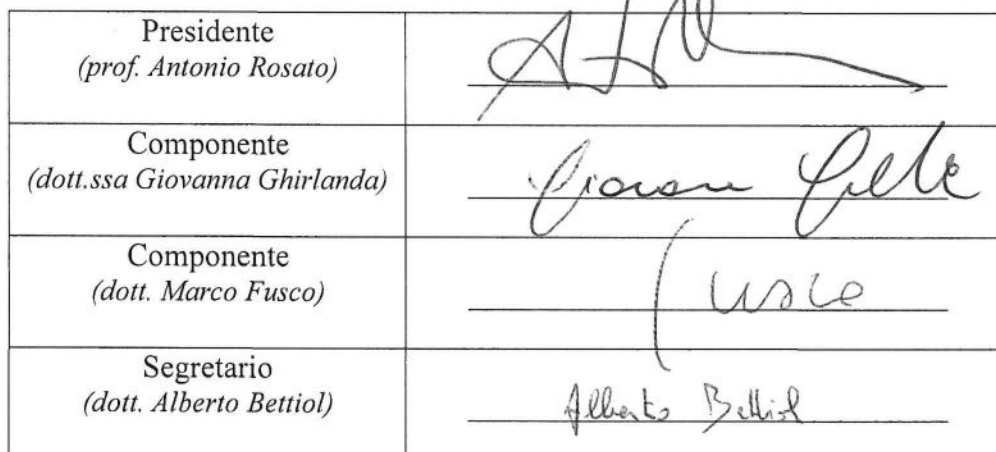 Presidente
(prof. Antonio Rosato)
Componente
(dott.ssa Giovanna Ghirlanda)
Componente
(dott. Marco Fusco)
Segretario
(dott. Alberto Bettiol)
Alberto Bettiol